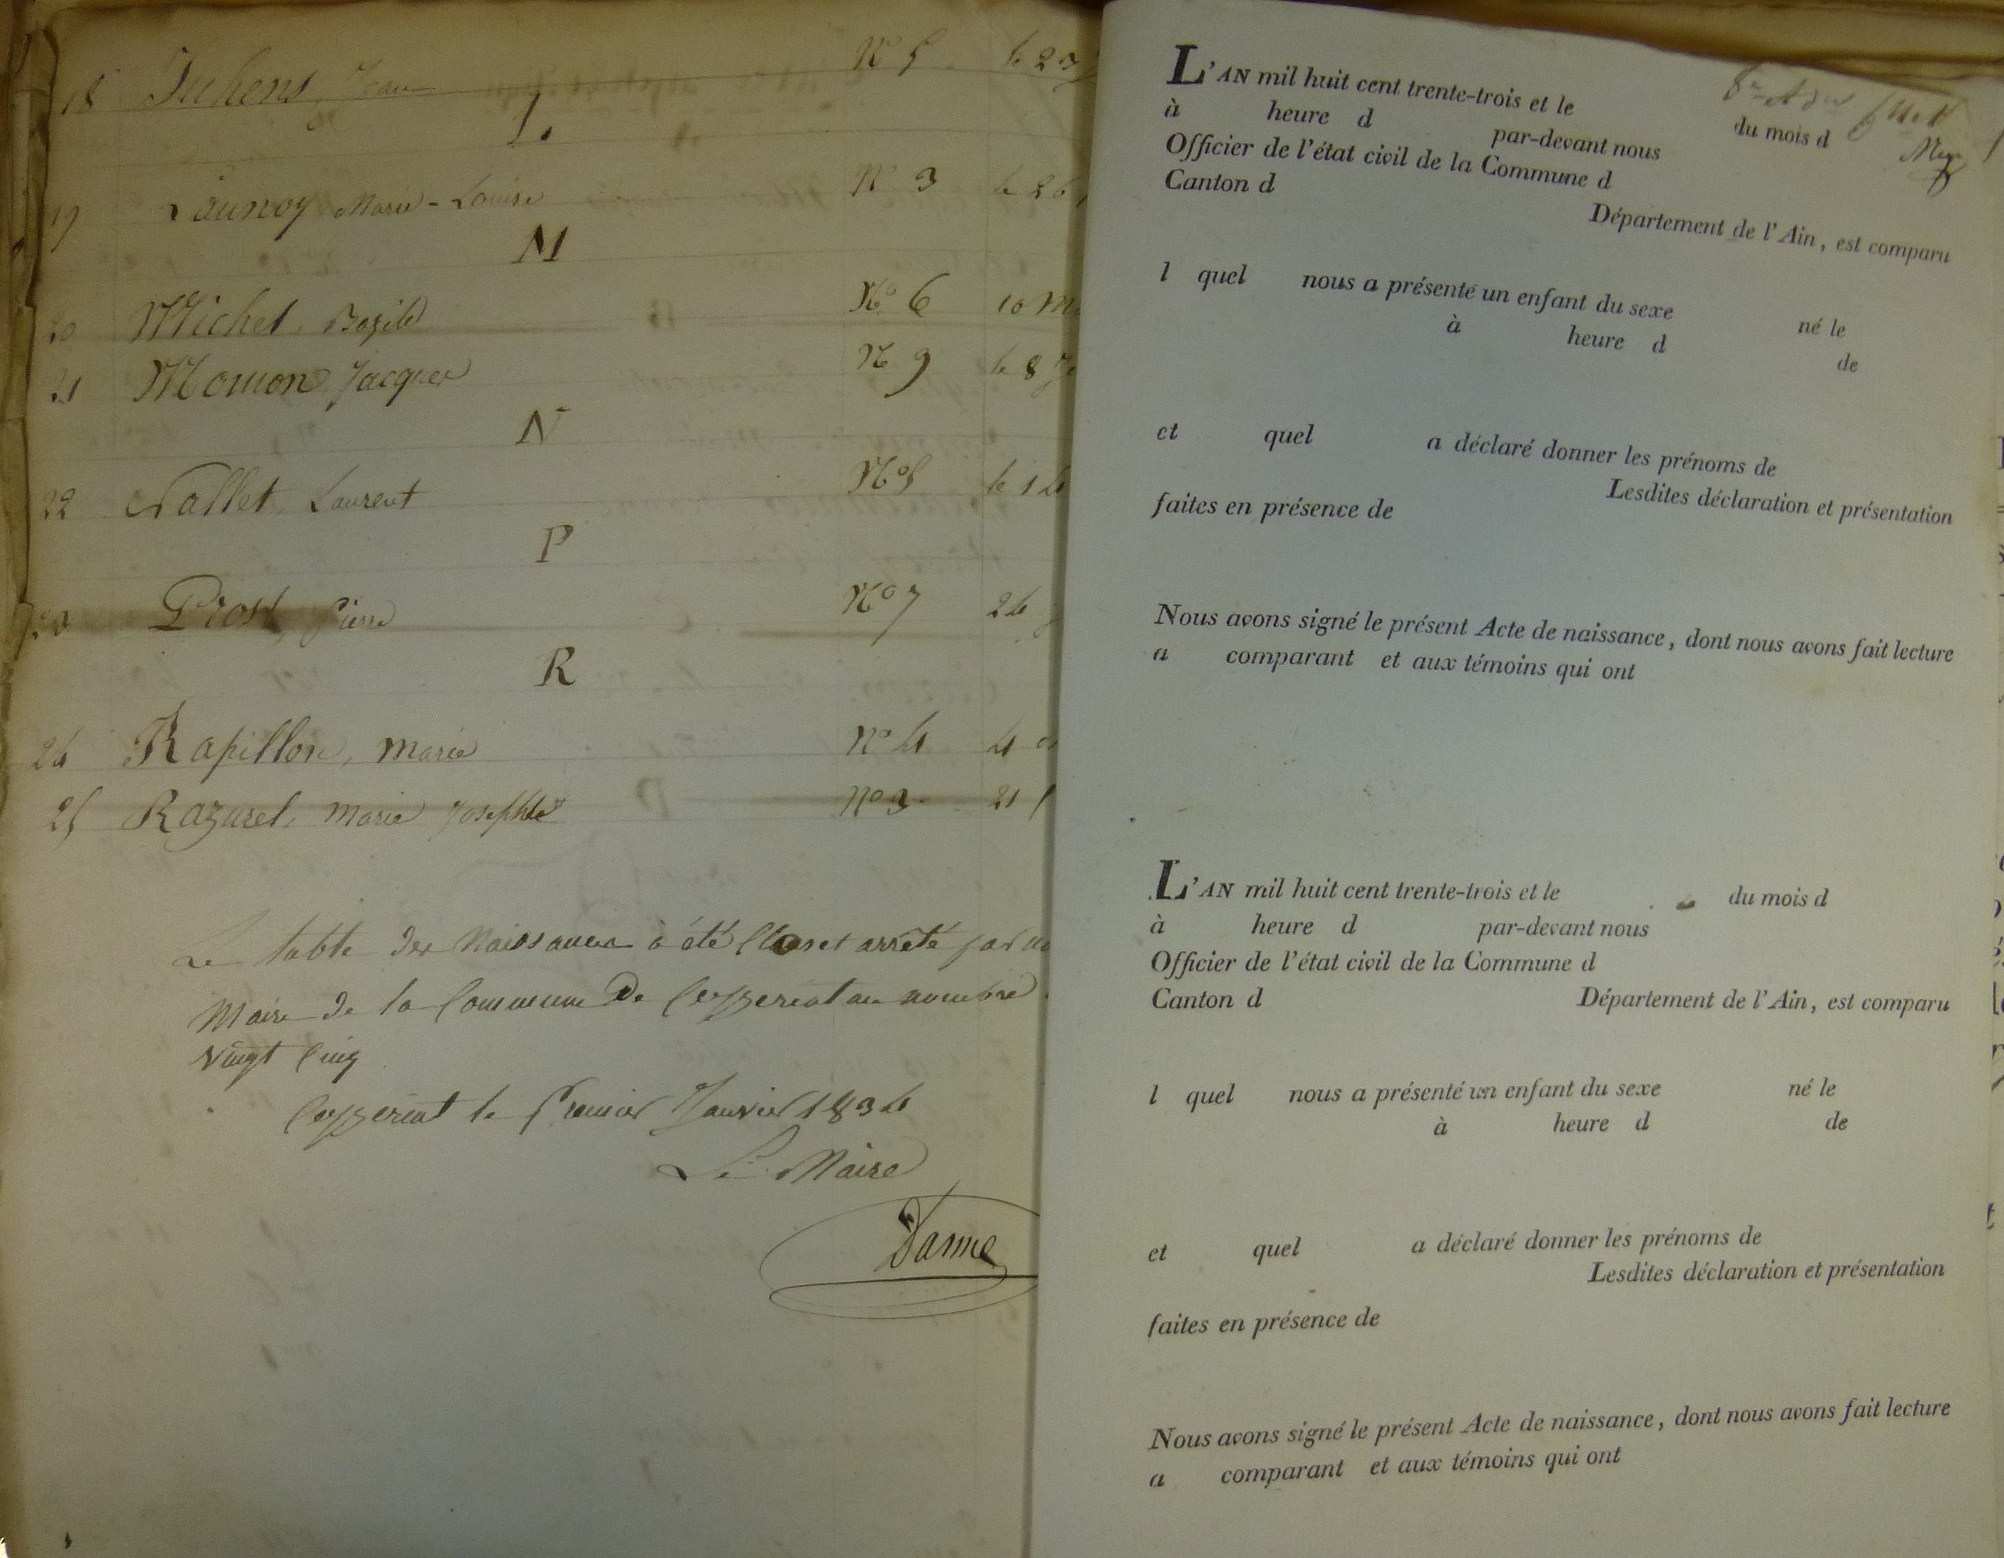 18 Juhens, Jean N° 5 le 23
L.
19 Launoy Marie-Louise N° 3 le 26
M
20 Michel, Bazile N° 6 10 M
21 Momon Jacques N° 9 le 8
N
22 Nallet, Laurent N° 5 le 14
P
23 Prost, Pierre N° 7 24
R
24 Rapillon, marie N° 4 4
25 Razurel, marie Josephte N° 3 21
Le table des Naissances à été Clos et arrêté par
Maire de la Commune De Ceyzeriat au nombre
vingt Cinq
Ceyzeriat le Premier Janvier 1834
Le Maire
Darme
L'AN mil huit cent trente-trois et le du mois d
à heure d par-devant nous
Officier de l'état civil de la Commune d
Canton d Département de l'Ain, est comparu
l quel nous a présenté un enfant du sexe né le
à heure d de
et quel a déclaré donner les prénoms de
Lesdites déclaration et présentation
faites en présence de
Nous avons signé le présent Acte de naissance, dont nous avons fait lecture
a comparant et aux témoins qui ont
L'AN mil huit cent trente-trois et le du mois d
à heure d par-devant nous
Officier de l'état civil de la Commune d
Canton d Département de l'Ain, est comparu
l quel nous a présenté un enfant du sexe né le
à heure d de
et quel a déclaré donner les prénoms de
Lesdites déclaration et présentation
faites en présence de
Nous avons signé le présent Acte de naissance, dont nous avons fait lecture
a comparant et aux témoins qui ont